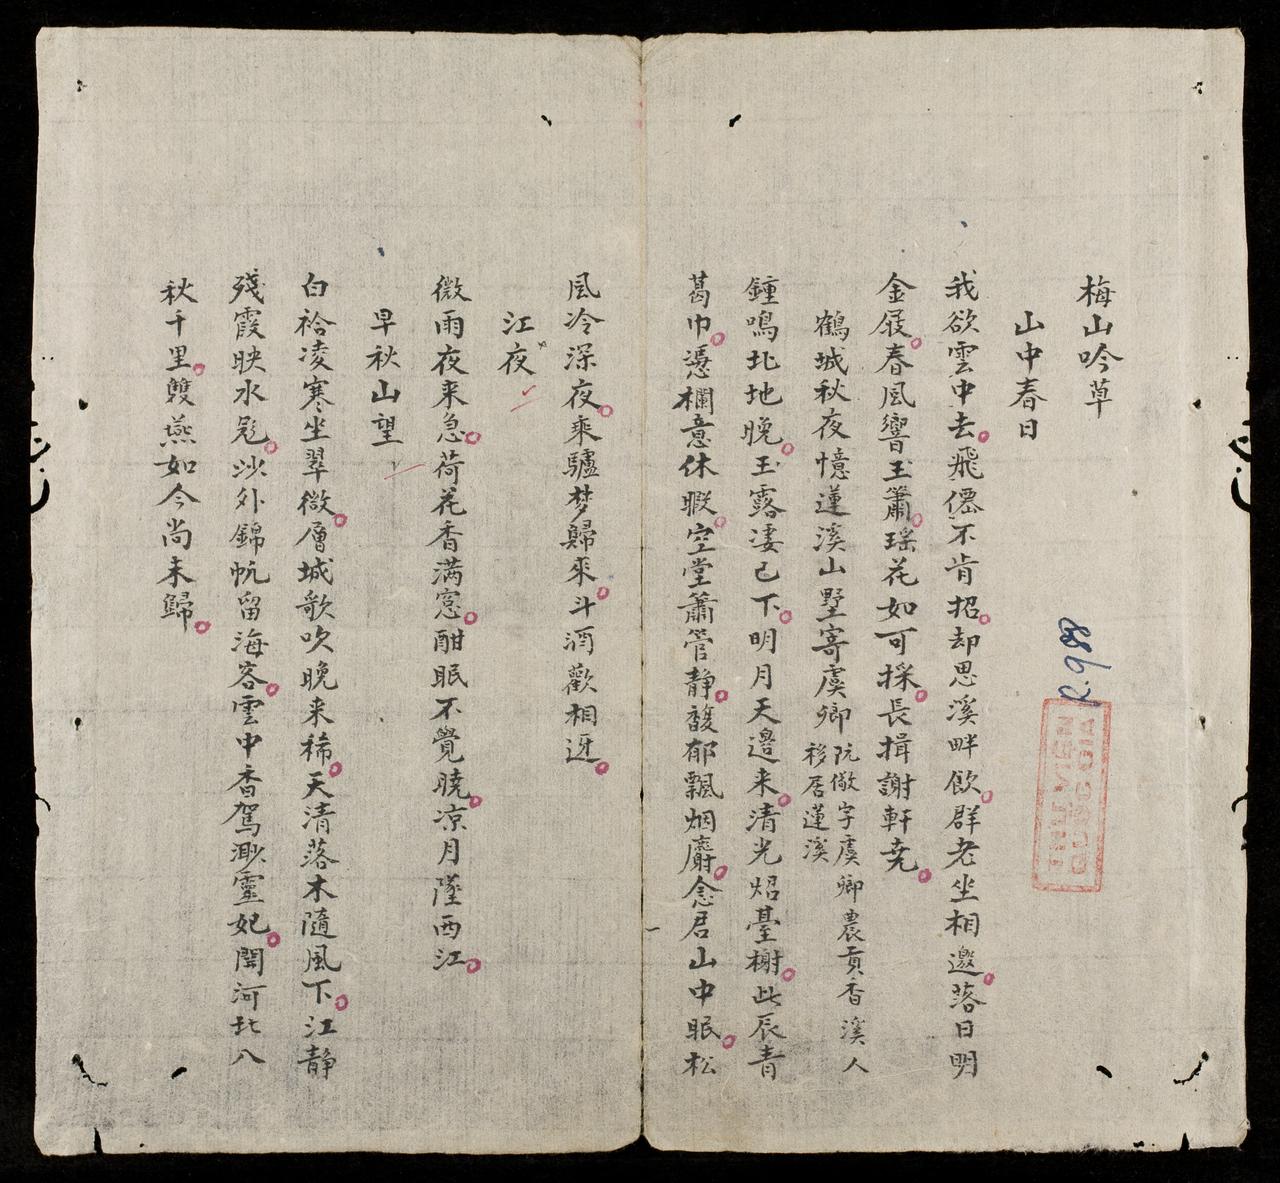 梅山吟草
山中春日
我欲雲中去飛僊不肯招却思溪畔飲群老坐相邀落日明
金屐春風響玉簫瑶花如可採長揖謝軒尭
鶴城秋夜憶蓮溪山墅寄虞卿 阮儆字虞卿農貢香溪人
移居蓮溪
鍾鳴北地晚玉露淒已下明月天邉来清光炤臺榭此辰青
葛巾憑欄意休暇空堂簫管静馥郁飄烟麝念君山中眠松
風冷深夜乘驢梦歸來斗酒歡相迓
江夜
微雨夜来急荷花香満窓酣眠不覺曉凉月墜西江
早秋山望
白袷凌寒坐翠微層城歌吹晚来稀天清落木隨風下江静
殘霞映水飛沙外錦帆留海客雲中香駕渺靈妃関河北八
秋千里雙燕如今尚未歸
R.968